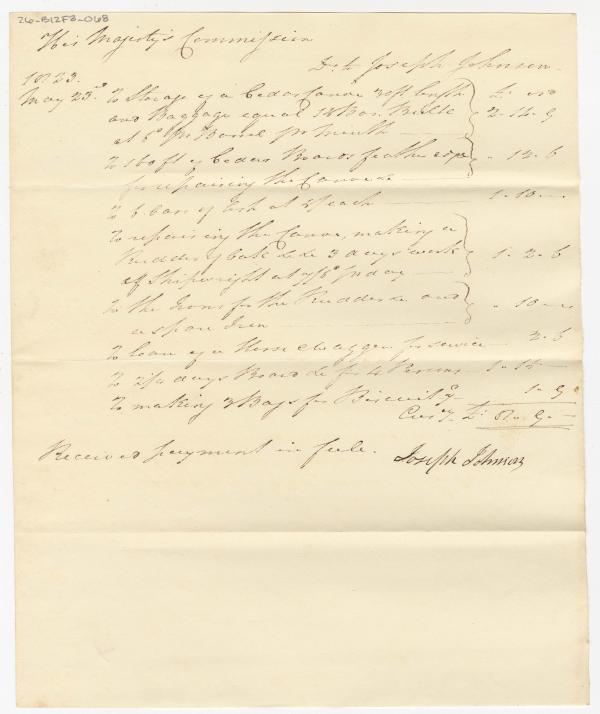 26-B12F3-068
His Majesty's Commission
Dr. to Joseph Johnson
1823.
May 23d. To Storage of a Cedar Canoe 30ft length
and Baggage equal 18 Bar. Bulk 2.14.9
at 6d pr Barrel pr Month
To 160 ft of Cedar Boards feather edge " 12.6
for repairing the Canoe
To 6 bars of at 5/ each 1.10.
To repairing the Canoe, making a
Rudder, 3 days work 1.2.6
of Shipwright at 7/6 pr day
To the Irons for the Rudder and " 10.
a spare Iron
To loan of a Horse & Waggon for service 2.6
To days Board for 4 Persons 1.
To making 2 Bags for Biscuit 1.9
Curcy. £ 9.
Received payment in full. Joseph Johnson